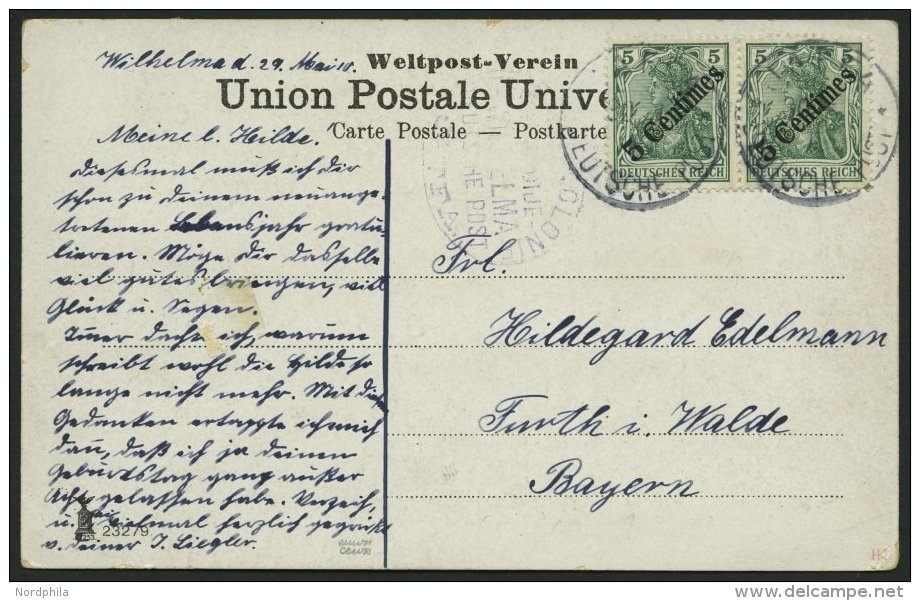 Wilhelma d. 29. Mai 10.
Weltpost-Verein
Union Postale Unive
Carte Postale — Postkarte
5 5 5 5
5 Centimes 5 Centimes
DEUTSCHES REICH DEUTSCHES REICH
DEUTSCHE
DEUTSCHE POST
Meine l. Hilde.
Diesesmal muß ich dir
schon zu deinem neuange-
tretenen Lebensjahr gratu-
lieren. Möge dir dasselbe
viel gutes bringen, viel
Glück u. Segen.
Immer dachte ich, warum
schreibt wohl die Hilde so
lange nicht mehr. Mit diesen
Gedanken ertappte ich mich
dann, daß ich ja deinen
Geburtstag ganz außer
Acht gelassen habe. Verzeih,
u. vielmal herzlich gegrüßt
v. deiner J. Ziegler.
Frl.
Hildegard Edelmann
Furth i. Walde
Bayern
253
23279
HC
Nordphila
delcampe.net